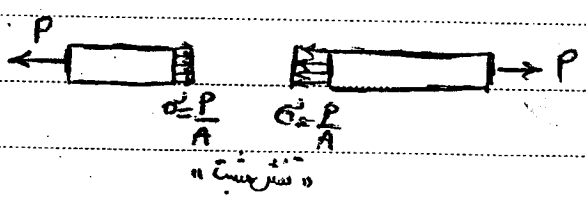 P P
σ = P/A σ = P/A
« تنش مثبت »